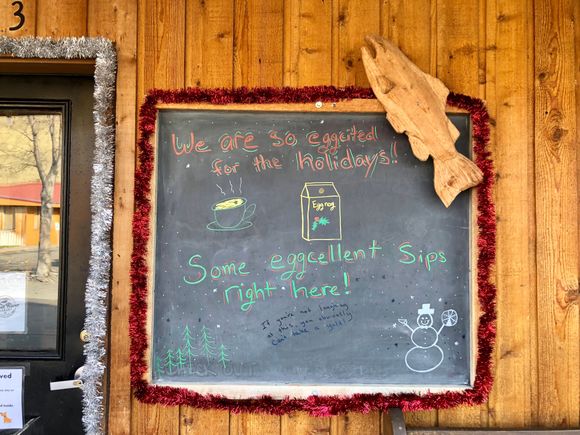 3
We are so eggcited
for the holidays!!
Egg nog
Some eggcellent Sips
right here!
If you're not laughing
at this, you obviously
Can't take a yolk!